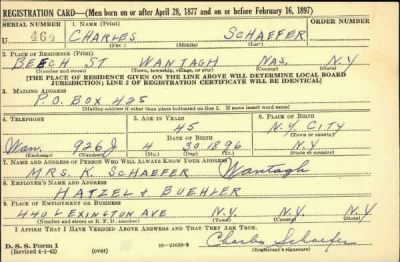 REGISTRATION CARD—(Men born on or after April 28, 1877 and on or before February 16, 1897)
SERIAL NUMBER 1. NAME (Print)
U 464 CHARLES SCHAEFER
(First) (Middle) (Last)
2. PLACE OF RESIDENCE (Print)
BEECH ST WANTAGH NAS. N.Y
(Number and street) (Town, township, village, or city) (County) (State)
[THE PLACE OF RESIDENCE GIVEN ON THE LINE ABOVE WILL DETERMINE LOCAL BOARD
JURISDICTION; LINE 2 OF REGISTRATION CERTIFICATE WILL BE IDENTICAL]
3. MAILING ADDRESS
P.O. BOX 425
[Mailing address if other than place indicated on line 2. If same insert word same]
4. TELEPHONE 5. AGE IN YEARS 6. PLACE OF BIRTH
45 N.Y. CITY
DATE OF BIRTH (Town or county)
Wan. 926J 4 30 1896 N.Y.
(Exchange) (Number) (Mo.) (Day) (Yr.) (State or country)
7. NAME AND ADDRESS OF PERSON WHO WILL ALWAYS KNOW YOUR ADDRESS
MRS. K. SCHAEFER Wantagh
8. EMPLOYER'S NAME AND ADDRESS
HATZEL & BUEHLER
9. PLACE OF EMPLOYMENT OR BUSINESS
440 LEXINGTON AVE N.Y. N.Y.
(Number and street or R. F. D. number) (Town) (County) (State)
I AFFIRM THAT I HAVE VERIFIED ABOVE ANSWERS AND THAT THEY ARE TRUE.
D. S. S. Form 1
(Revised 4-1-42) (over) 16—21630-2 Charles Schaefer
(Registrant's signature)